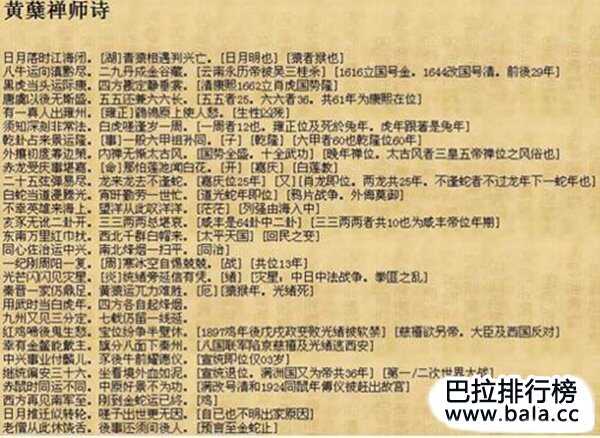 黄蘗禅师诗
日月落时江海闭。[湖]青猿相遇判兴亡。[日月明也] [猿者猴也]
八牛运向滇黔尽。二九丹成金谷藏。[云南永历帝被吴三桂杀] [1616立国号金。1644改国号清。前後29年]
黑虎当头运际康。四方戡定静垂裳。[清康熙1662立肖虎国势隆]
唐虞以後无斯盛。五五还兼六六长。[五五者25。六六者36。共61年为康熙在位]
有一真人出雍州。[雍正] 鹡鸰原上使人愁。[生性凶死]
须知深刻非常法。白虎嗟逢岁一周。[一周者12也。雍正位及死於兔年。虎年跟著是兔年]
乾卦占来景运隆。[事]一般六甲祖孙同。[子] [乾隆] [六甲者60也乾隆位60年]
外攘初度筹边策。内禅无惭太古风。[国势全盛。十全武功] [晚年禅位。太古风者三皇五帝禅位之风俗也]
赤龙受庆事堪嘉。[命]那怕莲池闻白花。[开] [嘉庆] [白莲教]
二十五弦弹易尽。龙来龙去不逢蛇。[嘉庆位25年] [又] [肖龙即位。两龙共25年。不逢蛇者不过龙年下一蛇年也]
白蛇当道漫腾光。宵旰勤劳一世忙。[道光蛇年即位] [鸦片战争。外侮莫御]
不幸英雄来海上。望洋从此叹洋洋。[茫茫] [列强由海入中]
亥豕无讹二卦开。三三两两总堪哀。[咸丰是64卦中二卦] [三三两两者共10也为咸丰帝位年期]
东南万里红巾扰。西北千群白帽来。[太平天国] [回民之变]
同心佐治运中兴。南北烽烟一扫平。[同治]
一纪刚周阳一复。[周]寒冰空自惕兢兢。[战] [共位13年]
光芒闪闪见灾星。[炎]统绪旁延信有凭。[绪] [灾星：中日中法战争。拳匪之乱]
秦晋一家仍鼎足。黄猿运兀力难胜。[厄] [猿猴年。光绪死]
用武时当白虎年。四方各自起烽烟。
九州又见三分定。七载仍留一线延。
红鸡啼後鬼生愁。宝位纷争半壁休。[1897鸡年後戊戌政变败光绪被软禁] [慈禧欲另帝。大臣及西国反对]
幸有金鳌能戴主。旗分八面下秦州。[八国联军陷京慈禧及光绪逃西安]
中兴事业付麟儿。豕後牛前耀德仪。[宣统即位仅03岁]
继统偏安三十六。坐看境外血如泥。[宣统退位。满洲国又为帝共36年] [第一/二次世界大战]
赤鼠时同运不同。中原好景不为功。[满改号清和1924同鼠年傅仪被赶出故宫]
西方再见南军至。刚到金蛇运已终。[鸡]
日月推迁似转轮。嗟子出世更无因。[自己也不明出家原因]
老僧从此休饶舌。後事还须问後人。[预言至金蛇止]
巴拉排行榜
www.bala.cc